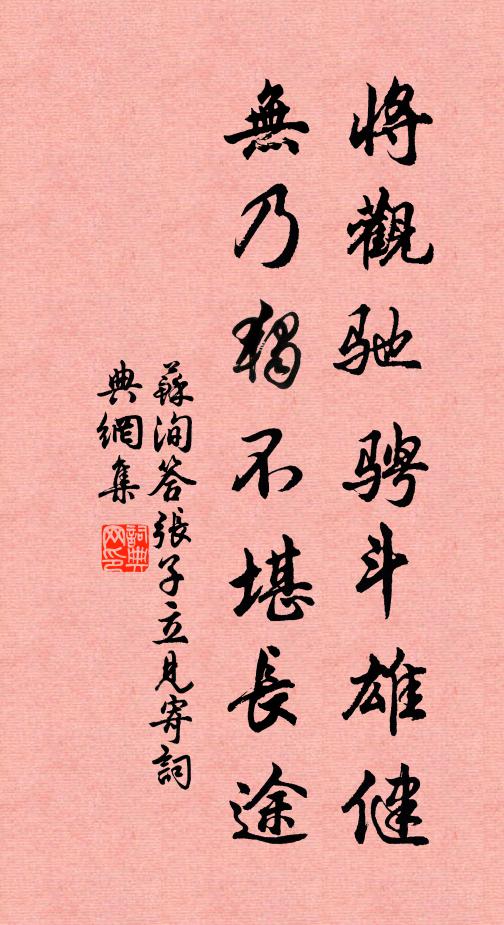 將觀驰骋斗雄健
無乃獨不堪長途
蘇洵答張子立見寄詞
典網集
詞典
网印